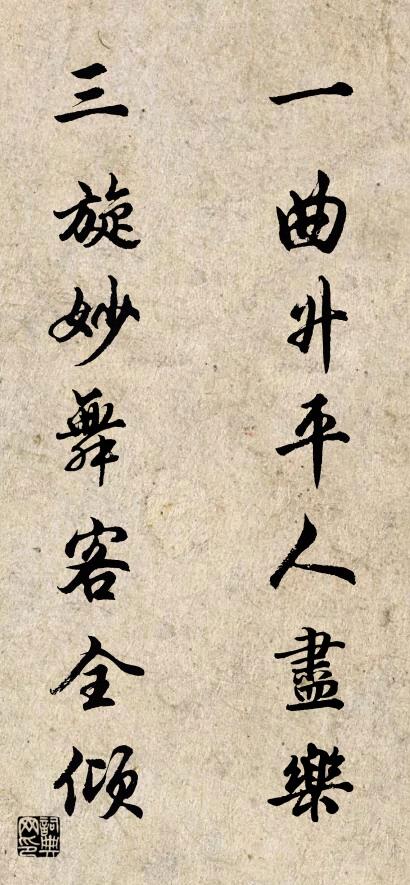 一曲升平人盡樂
三旋妙舞客全傾
詞典网印